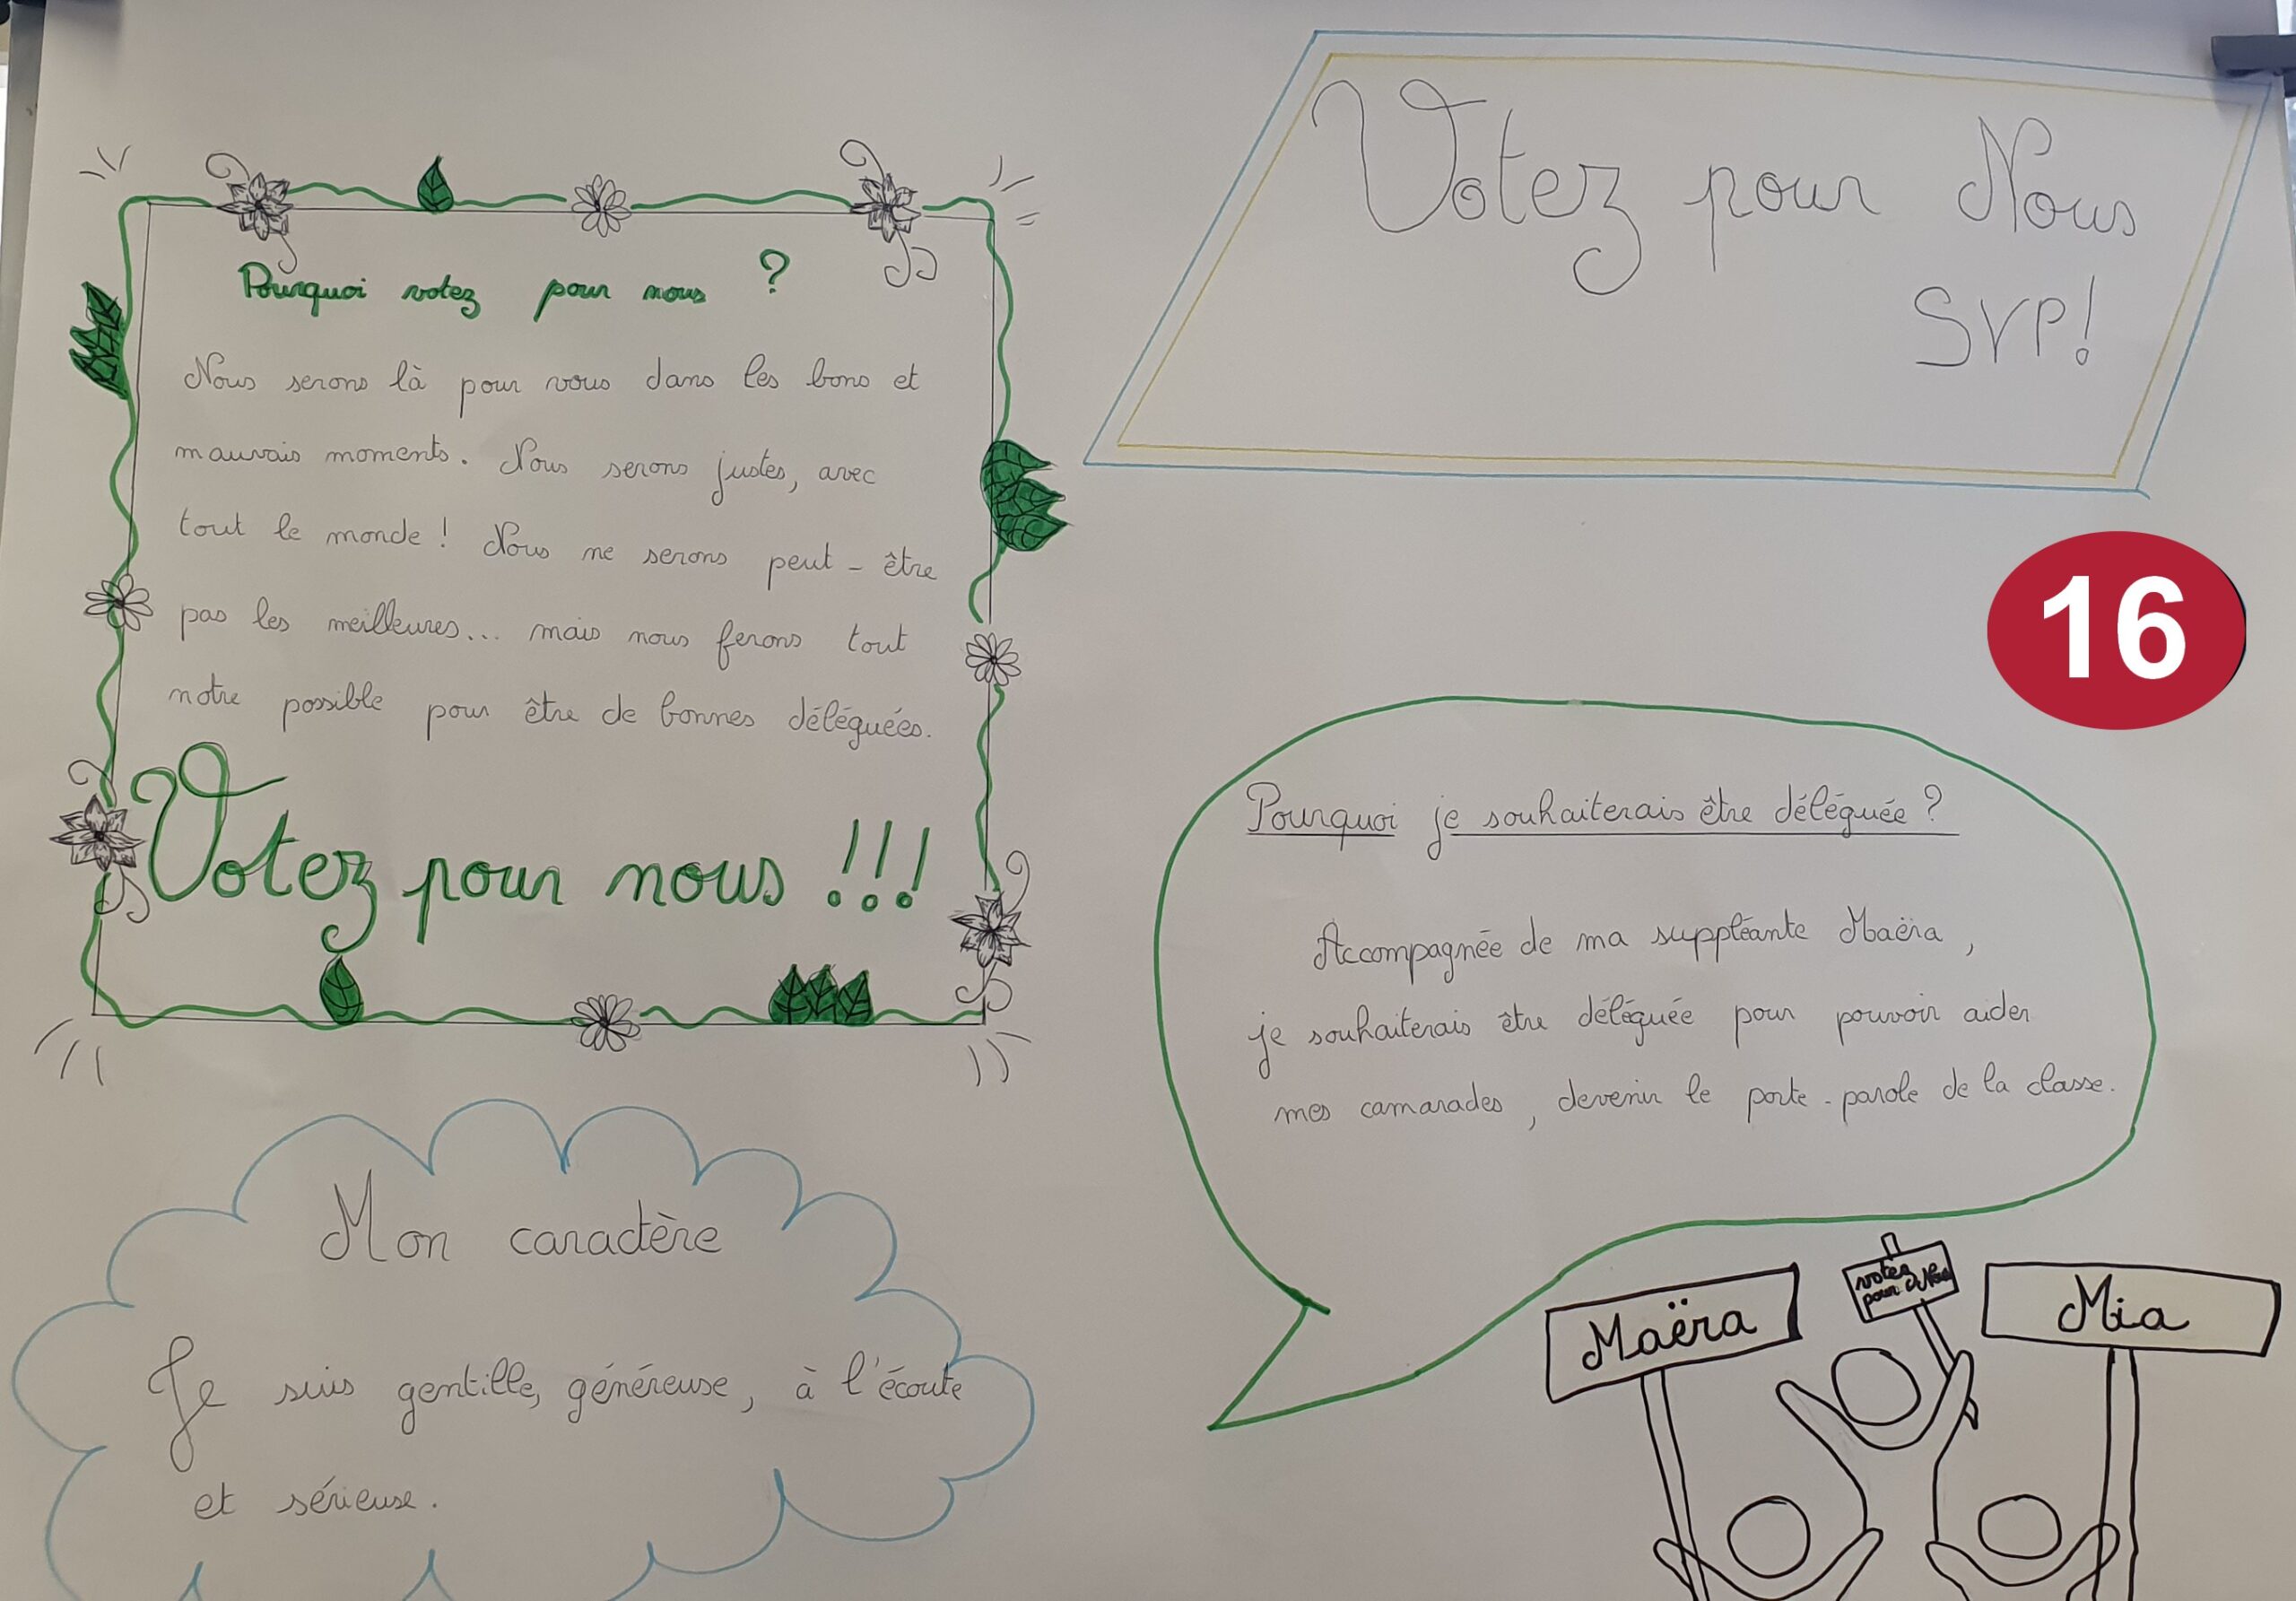 Votez pour Nous
SVP!
Pourquoi votez pour nous ?
Nous serons là pour vous dans les bons et
mauvais moments. Nous serons justes, avec
tout le monde ! Nous ne serons peut-être
pas les meilleures... mais nous ferons tout
notre possible pour être de bonnes déléguées.
Votez pour nous !!!
16
Pourquoi je souhaiterais être déléguée ?
Accompagnée de ma suppléante Maëra,
je souhaiterais être déléguée pour pouvoir aider
mes camarades, devenir le porte-parole de la classe.
Mon caractère
Je suis gentille, généreuse, à l'écoute
et sérieuse.
Maëra
votez
pour Nous
Mia